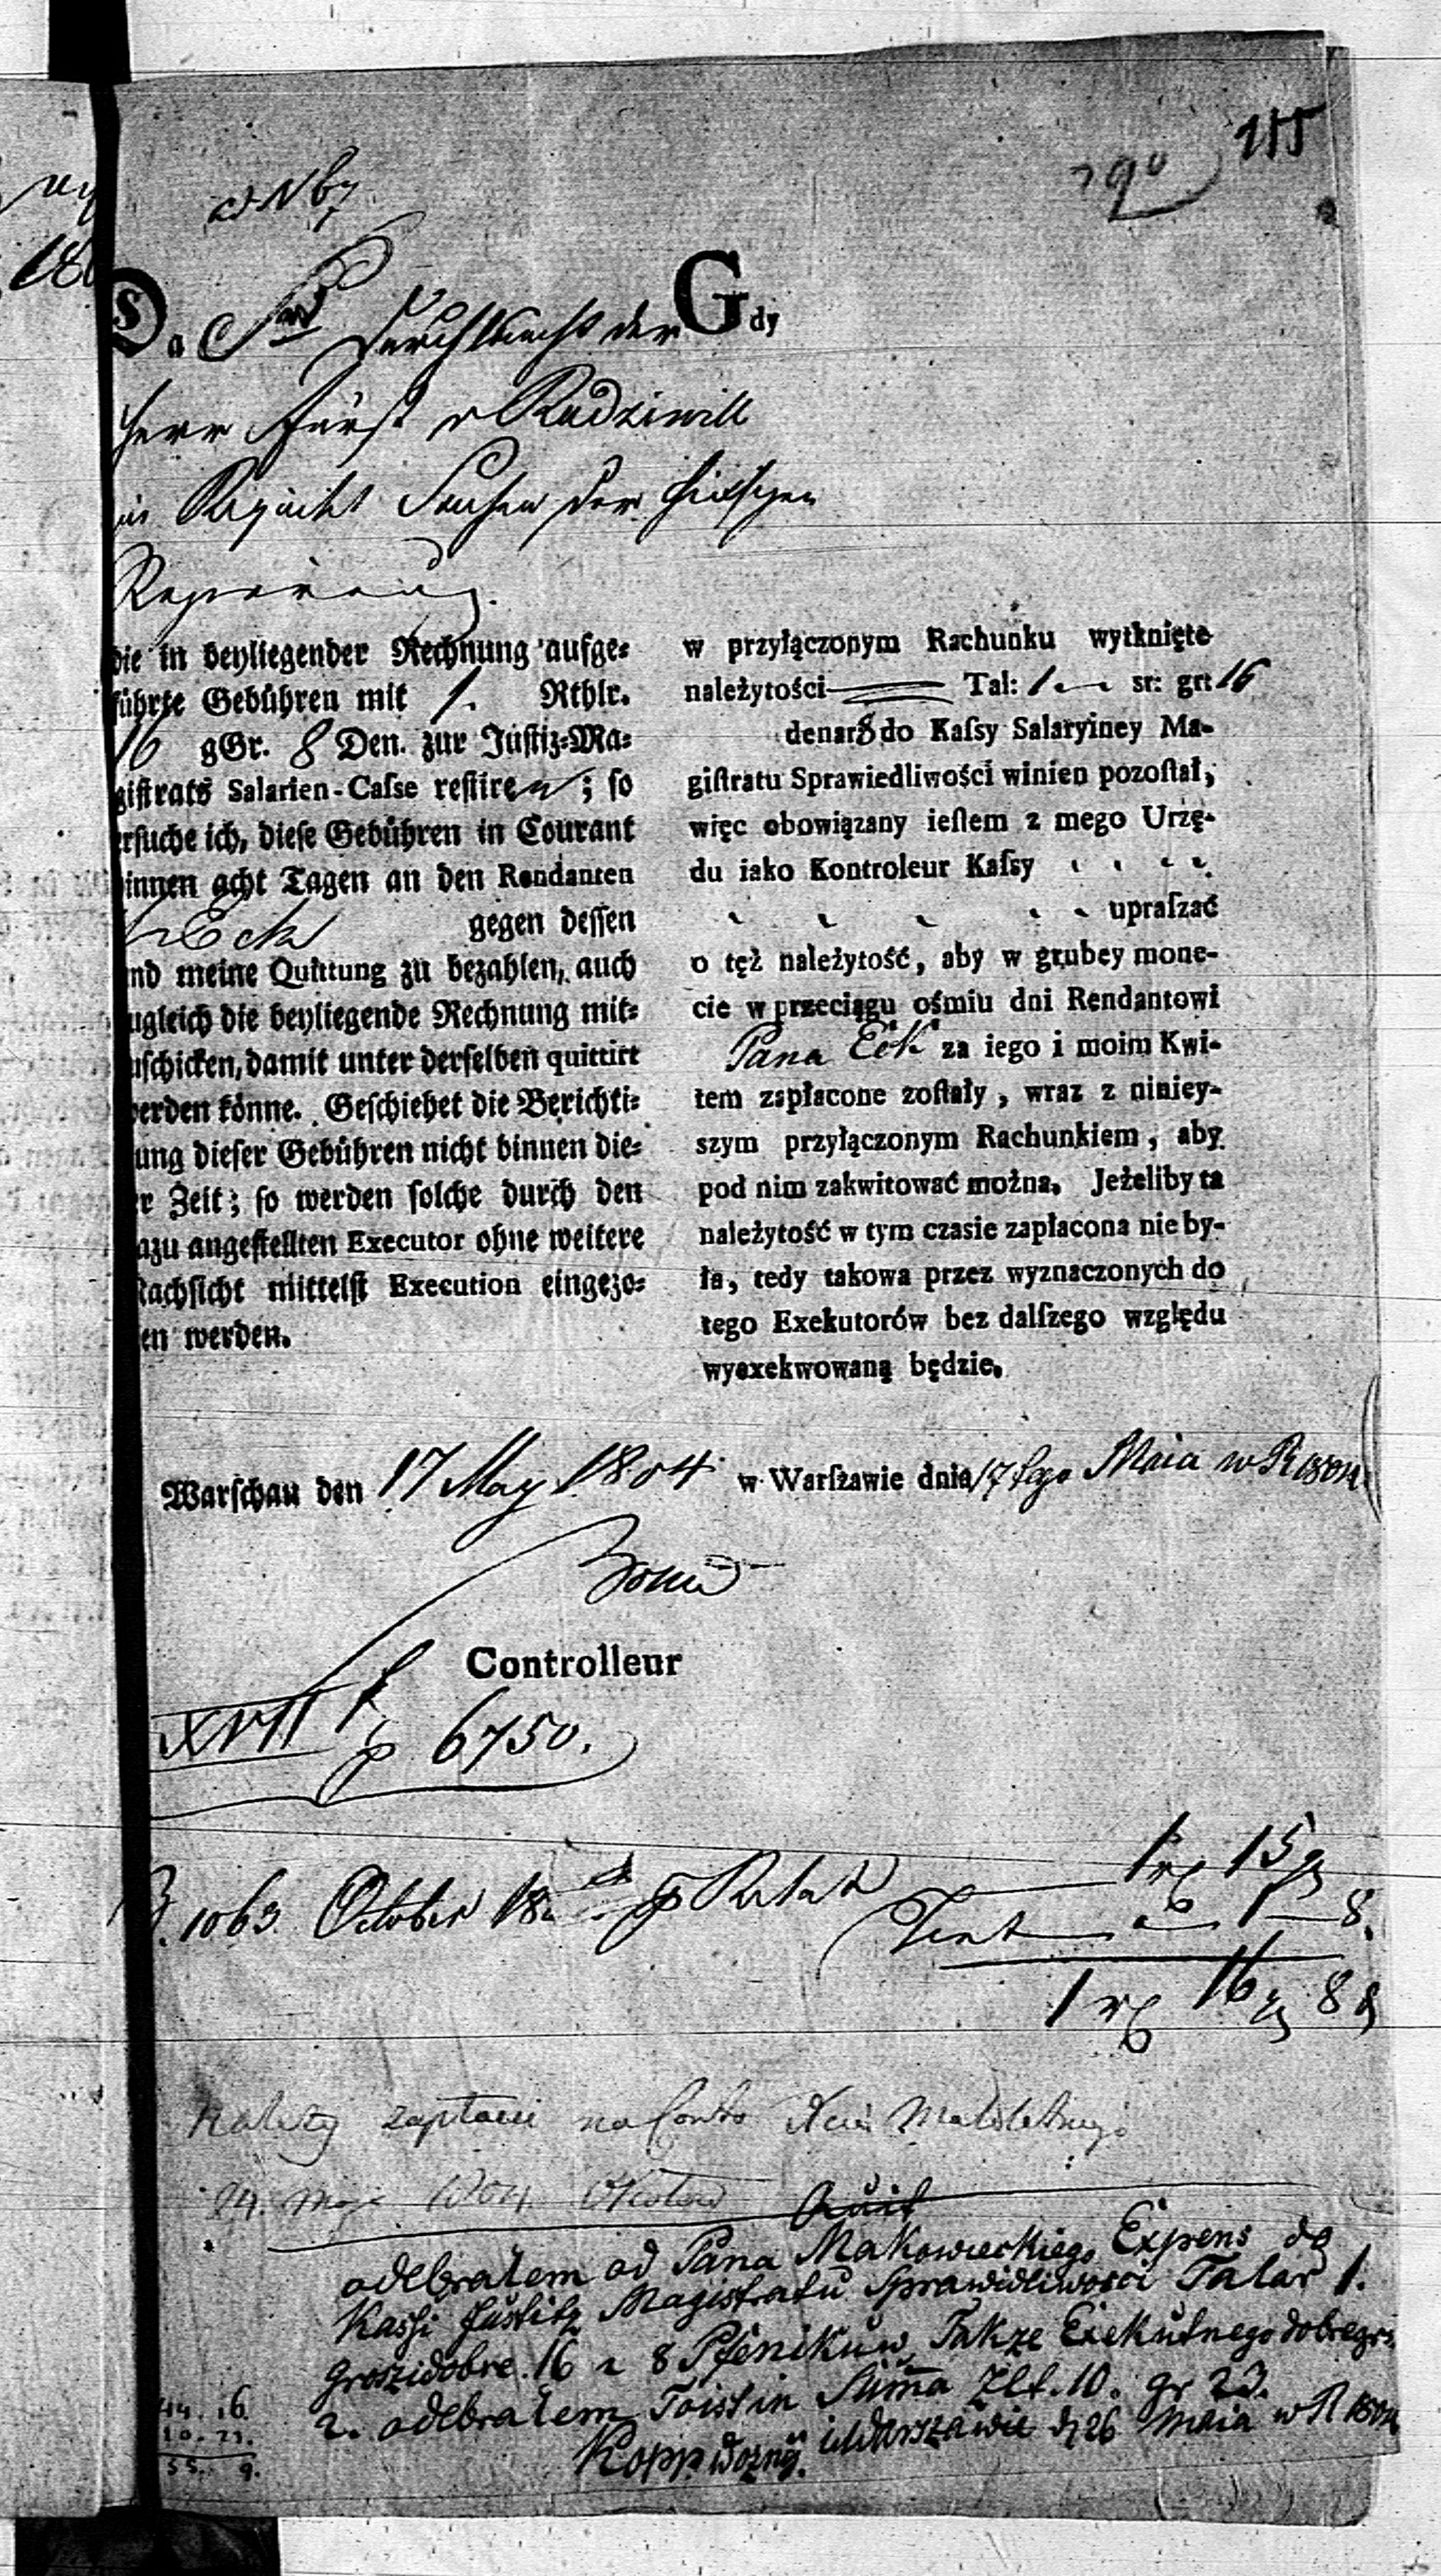 115
790
ad N 67
Da Sr Durchlaucht der
Herr Fürst v Radziwill
in Sachen der hiesigen
Regierung.
die in beyliegender Rechnung aufge=
führte Gebühren mit 1. Rthlr.
16 gGr. 8 Den. zur Justiz=Ma=
gistrats Salarien-Casse restiren; so
ersuche ich, diese Gebühren in Courant
binnen acht Tagen an den Rendanten
H Eck gegen dessen
und meine Quittung zu bezahlen, auch
zugleich die beyliegende Rechnung mit=
zuschicken, damit unter derselben quittirt
werden könne. Geschiehet die Berichti=
gung dieser Gebühren nicht binnen die=
ser Zeit; so werden solche durch den
dazu angestellten Executor ohne weitere
Nachsicht mittelst Execution eingezo=
gen werden.
Gdy
w przyłączonym Rachunku wytknięte
należytości Tal: 1 sr: gr: 16
denar 8 do Kaſsy Salaryiney Ma-
giſtratu Sprawiedliwości winien pozoſtał,
więc obowiązany ieſtem z mego Urzę-
du iako Kontroleur Kaſsy
upraſzać
o tęż należytość, aby w grubey mone-
cie w przeciągu ośmiu dni Rendantowi
Pana Eck za iego i moim Kwi-
tem zapłacone zoſtały, wraz z niniey-
szym przyłączonym Rachunkiem, aby
pod nim zakwitować można. Jeżeliby ta
należytość w tym czasie zapłacona nie by-
ła, tedy takowa przez wyznaczonych do
tego Exekutorów bez dalſzego względu
wyexekwowaną będzie.
Warschau den 17 May 1804
w Warſzawie dnia 17tego Maia w R 1804
Controlleur
XVII 6750.
1063 October 1 rt 15 g
1 8.
1 rt 16 g 8 d
Należy zapłacić na Conto
24. Maja 1804
Quit
odebrałem od Pana Makowieckiego Expens do
Kassi Justitz Magistratu Sprawidliwosci Talar 1.
groszidobre. 16 8 Pfenikuw Takze Exekutnego dobregr:
2. odebrałem Toistin Sum̄a Złt. 10. gr 23.
Kopp wozny. w Warszawie d 26 Maia w R 1804
44. 16.
10. 23.
55. 9.